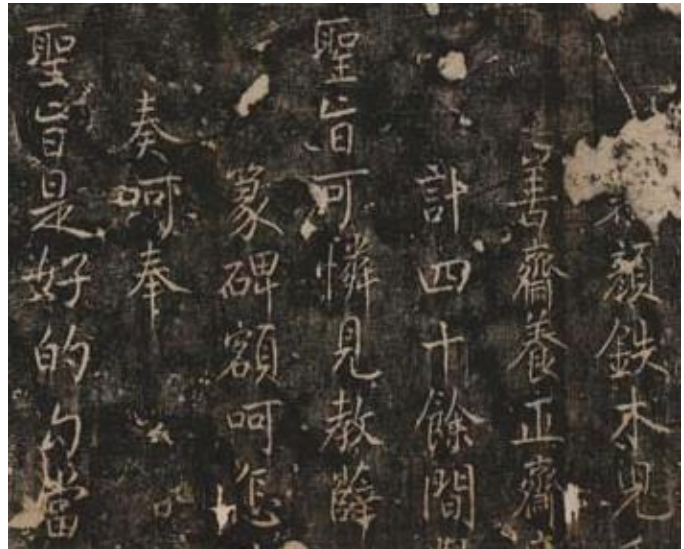 顏鉄木兒
善齋養正齋
計四十餘間
聖旨可憐見教薛
篆碑額呵怎
奏呵奉
聖旨是好的勾當